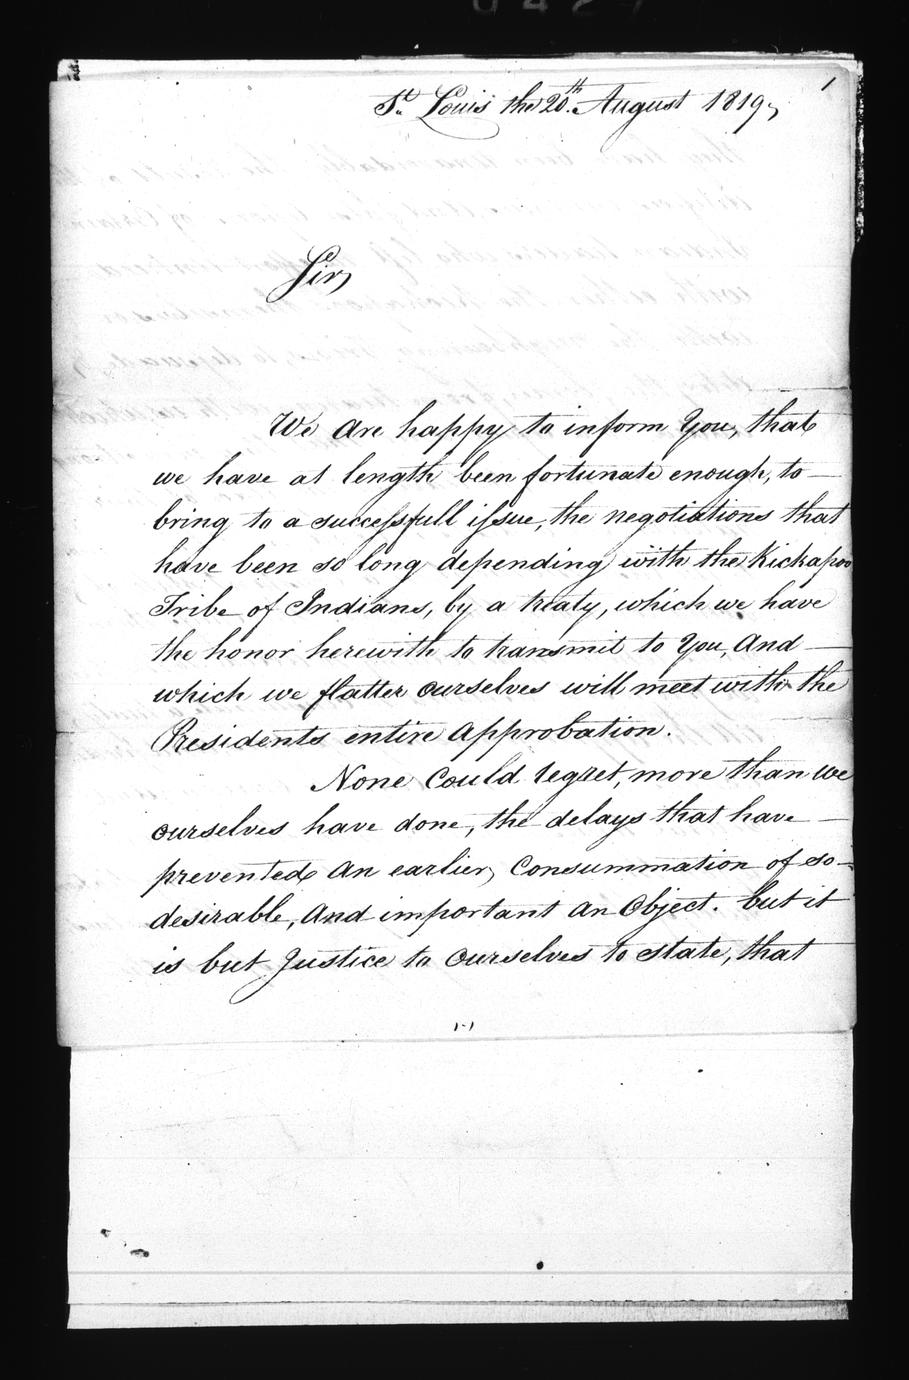 1
St. Louis the 20th. August 1819,
Sir,
We are happy to inform You, that
we have at length been fortunate enough, to —
bring to a successfull issue, the negotiations that
have been so long depending with the Kickapoo
Tribe of Indians, by a treaty, which we have
the honor herewith to transmit to You, and —
which we flatter ourselves will meet with the
Presidents entire approbation.
None could regret, more than we
ourselves have done, the delays that have —
prevented an earlier, Consummation of so —
desirable, and important an Object. but it
is but Justice to ourselves to state, that